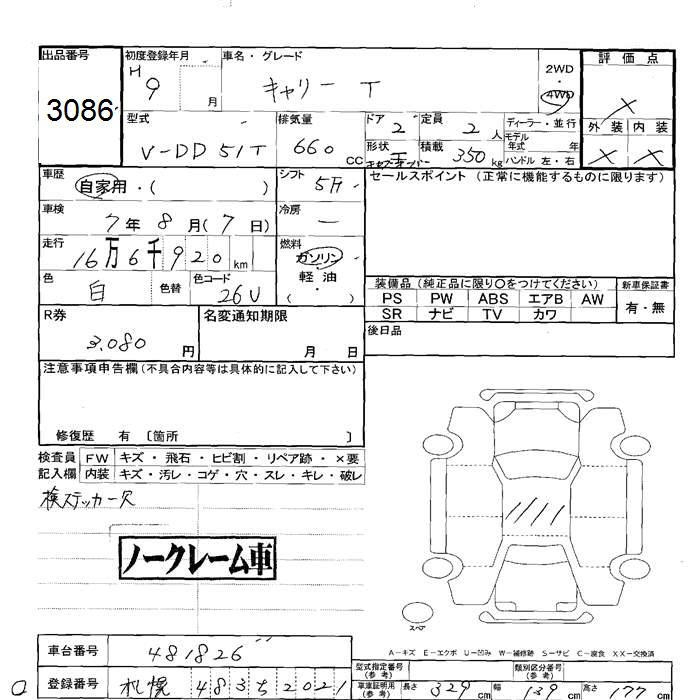 出品番号
3086
初度登録年月
H 9 月
車名・グレード
キャリー T
2WD
4WD
評価点
X
外装 内装
X X
型式
V-DD51T
排気量
660 CC
ドア 2
形状
定員 2 人
積載 350 kg
ディーラー・並行
モデル
年式 年
ハンドル 左・右
車歴
自家用・( )
シフト 5万
車検
7年 8月(7日)
冷房 ー
走行
16万6千920km
燃料
ガソリン
軽油
( ・ )
色 白
色替
色コード 26U
セールスポイント (正常に機能するものに限ります)
装備品(純正品に限り○をつけてください)
PS PW ABS エアB AW
SR ナビ TV カワ
新車保証書
有・無
後日品
R券
3,080円
名変通知期限
月 日
注意事項申告欄(不具合内容等は具体的に記入して下さい)
修復歴 有 〔箇所 〕
検査員
記入欄
FW キズ・飛石・ヒビ割・リペア跡・×要
内装 キズ・汚レ・コゲ・穴・スレ・キレ・破レ
検ステッカー欠
ノークレーム車
スペア
A−キズ E−エクボ U−凹み W−補修跡 S−サビ C−腐食 XX−交換済
車台番号 481826
登録番号 札幌 483ち2021
型式指定番号
(参考)
類別区分番号
(参考)
車庫証明用
(参考)
長さ 329cm 幅 139cm 高さ 177cm